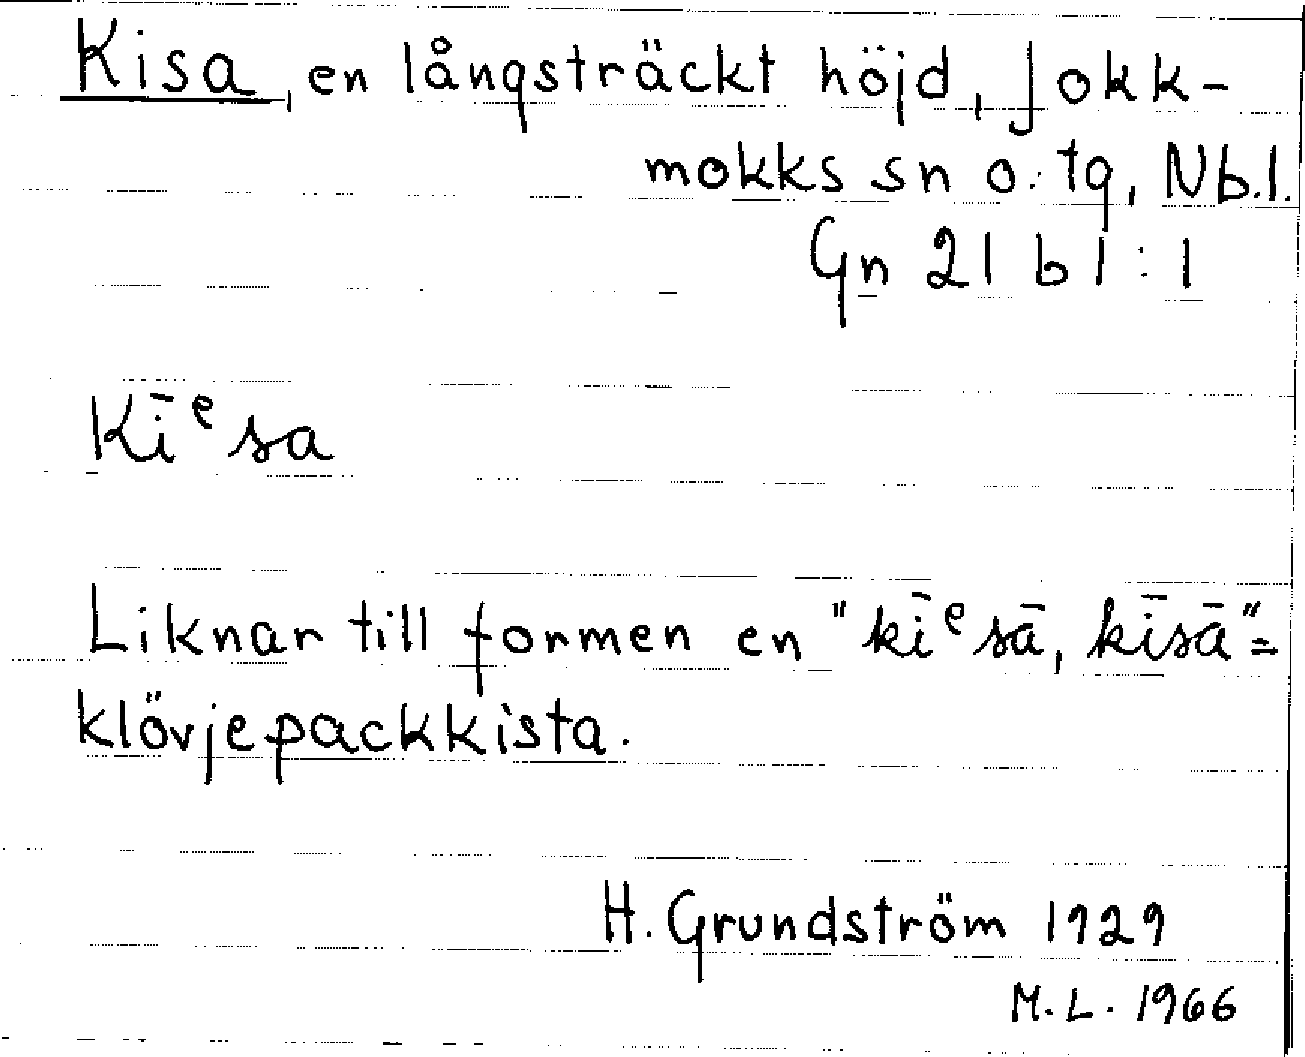 Kisa, en långsträckt höjd, Jokk-
mokks sn o. tg, Nb.l.
Gn 21 b 1 : 1
Kīᵉsa
Liknar till formen en "kīᵉsā, kīsā" =
klövjepackkista.
H. Grundström 1929
M. L. 1966